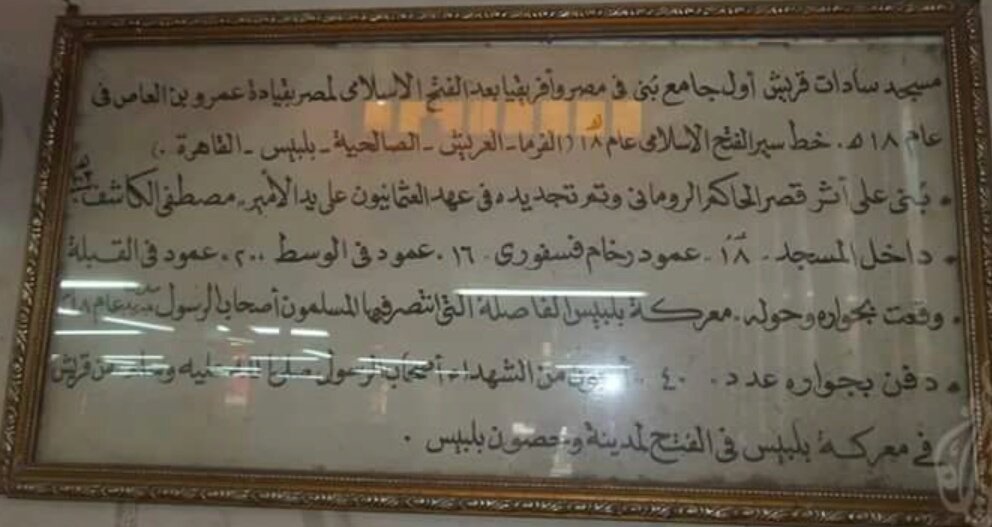 مسجد سادات قريش أول جامع بُنى فى مصر وأفريقيا بعد الفتح الاسلامى لمصر بقيادة عمرو بن العاص فى
عام ١٨ هـ. خط سير الفتح الاسلامى عام ١٨ هـ (الفرما - العريش - الصالحية - بلبيس - القاهرة .)
• بُنى على أثر قصر الحاكم الرومانى وتم تجديده فى عهد العثمانيون على يد الأمير مصطفى الكاشف
• داخل المسجد . ١٨ . عمود رخام فسفورى . ١٦ . عمود فى الوسط .٢٠. عمود فى القبلة
• وقعت بجواره وحوله . معركة بلبيس الفاصلة التى انتصر فيها المسلمون أصحاب الرسول عام ١٨
• دفن بجواره عدد . ٤٠ . من الشهداء أصحاب الرسول صلى الله عليه وسلم من قريش
فى معركة بلبيس فى الفتح لمدينة وحصون بلبيس .